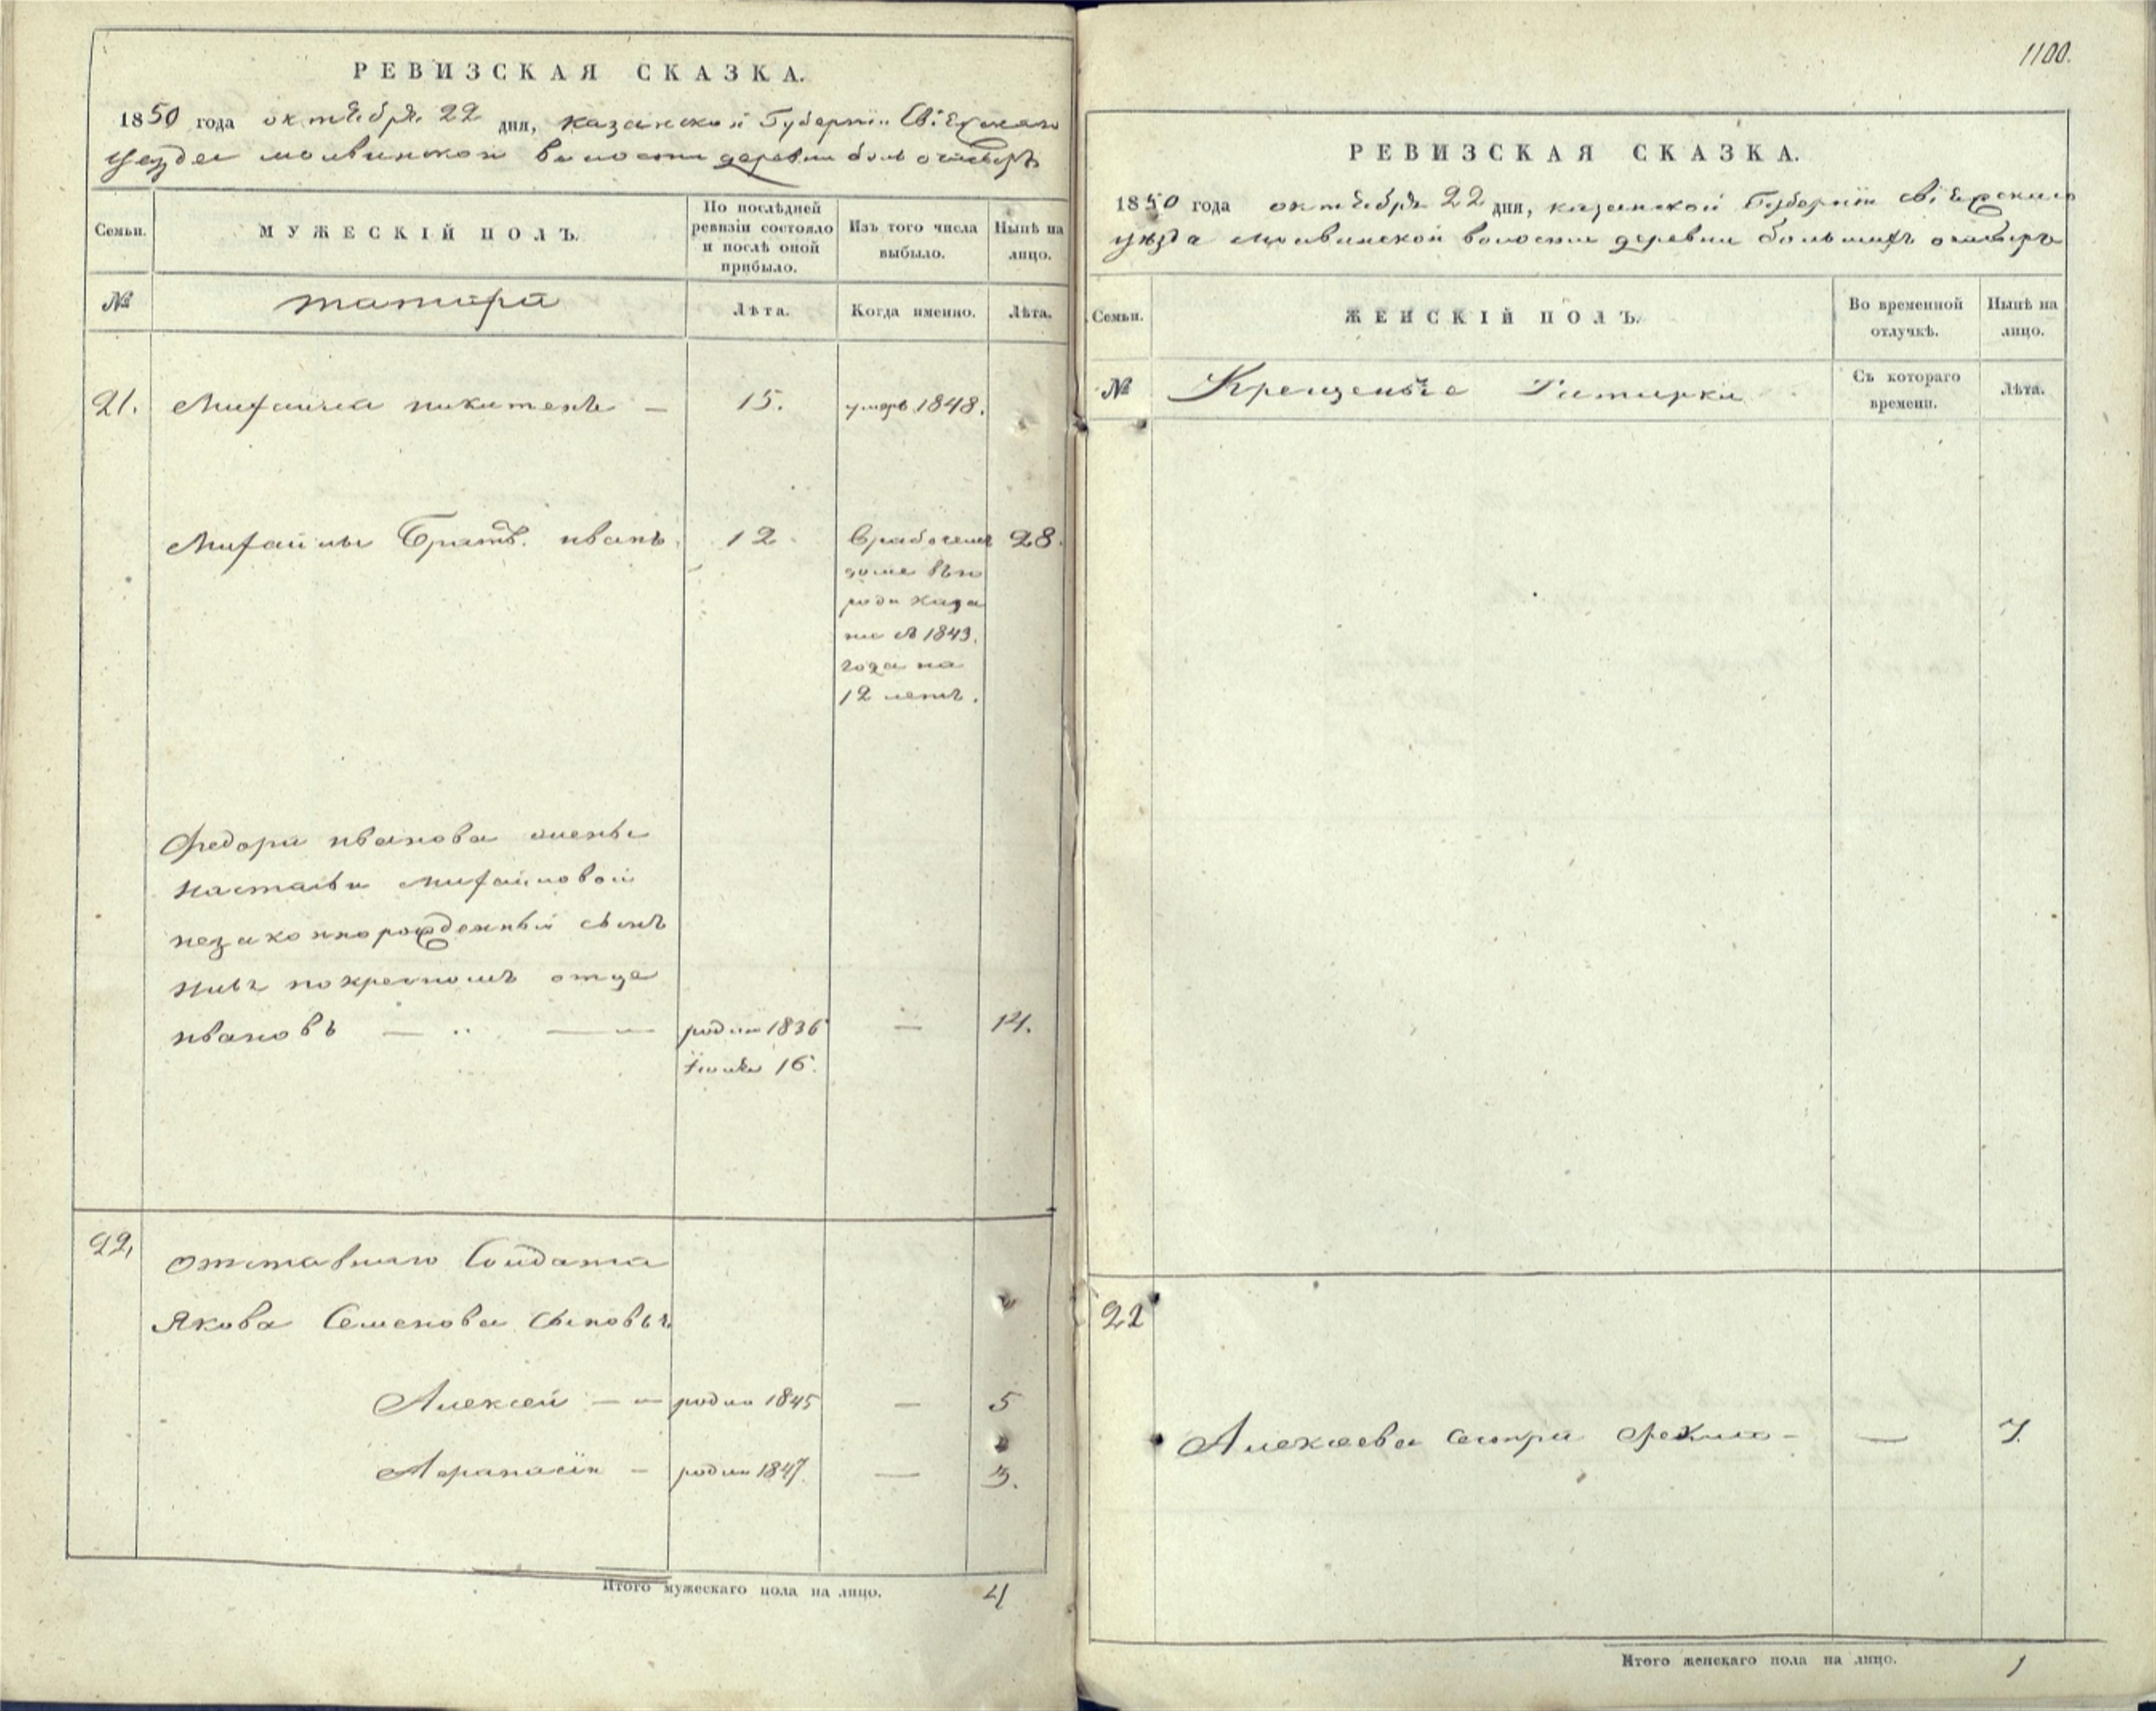 РЕВИЗСКАЯ СКАЗКА.
1850 года октября 22 дня, казанской Губернии Свіяжскаго
уезда молвинской волости деревни
Семьи.
МУЖЕСКІЙ ПОЛЪ.
По послѣдней
ревизіи состояло
и послѣ оной
прибыло.
Изъ того числа
выбыло.
Нынѣ на
лицо.
№
татары
Лѣта.
Когда именно.
Лѣта.
21.
Михайла никитенъ —
15.
умеръ 1848.
Михайлы Братъ иванъ.
12
В рабочемъ
28.
доме въ го
роде Каза
не съ 1843.
года на
12 летъ.
Федора иванова жены
Настасьи михайловой
незаконнорожденный сынъ
по крестномъ отце
ивановъ — — —
родил 1836
—
14.
16.
22.
отставнаго Солдата
Якова Семенова сыновья
Алексей — —
родил 1845
—
5
Афанасій —
родил 1847.
—
3.
Итого мужескаго пола на лицо.
4
1100.
РЕВИЗСКАЯ СКАЗКА.
1850 года октября 22 дня, казанской Губерніи Свіяжскаго
уѣзда молвинской волости деревни большихъ
Семьи.
ЖЕНСКІЙ ПОЛЪ.
Во временной
отлучкѣ.
Нынѣ на
лицо.
№
Крещеные Татарки
Съ котораго
времени.
Лѣта.
22
Алексеева сестра Фекла —
—
7.
Итого женскаго пола на лицо.
1